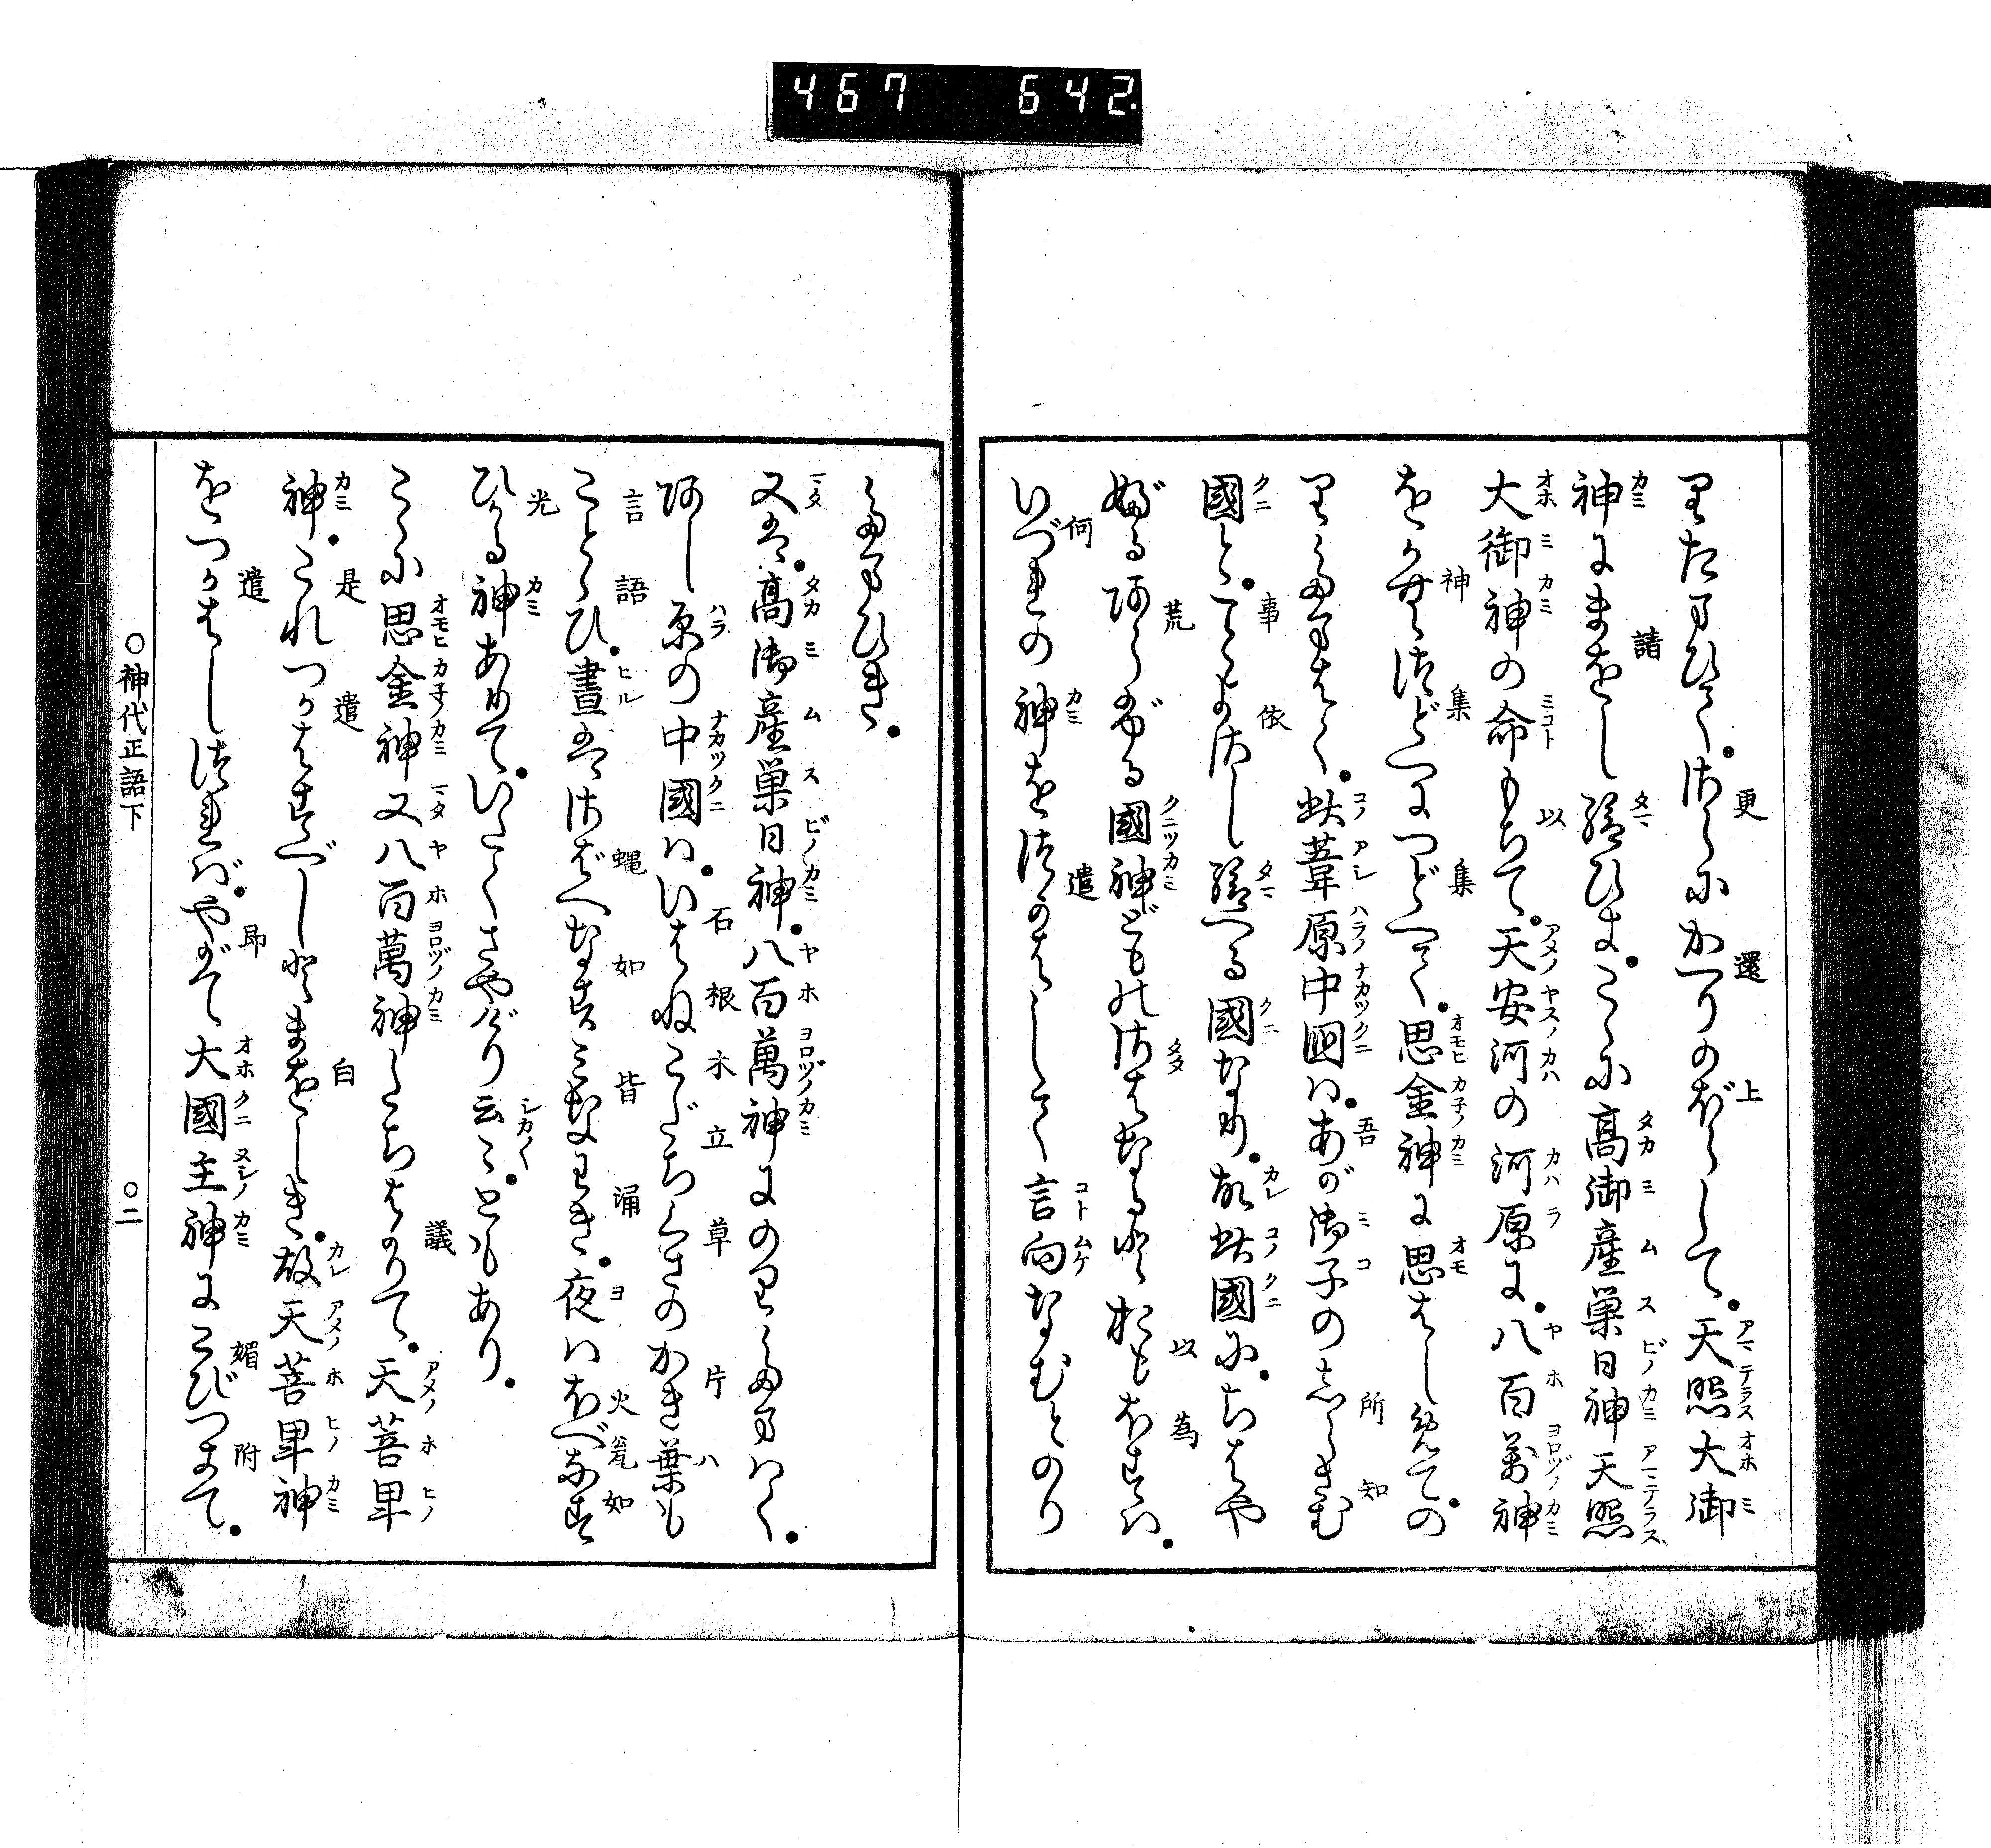 467 642
りたまひて。さらにかへりのぼらして。天照大御
神にまをし給ひき。こゝに高御産巣日神天照
大御神の命もちて。天安河の河原に。八百萬神
をかむつどへにつどへて。思金神に思はしめての
りたまはく。此葦原中國は。あが御子のしらさむ
國と。ことよさし給へる國なり。故此國に。ちはや
ぶるあらぶる國神どものさはなると。おもほすは。
いづれの神をつかはして言向なむとのり
たまひき。
又は。高御産巣日神。八百萬神にのりたまはく。
あし原の中國は。いはねこだちくさのかき葉も
ことゝひ。晝はさばへなすみなわき。夜はほべなす
ひかる神ありて。いたくさやげり云々。ともあり。
こゝに思金神又八百萬神たちはかりて。天菩卑
神。これつかはすべしとまをしき。故天菩卑神
をつかはしつれば。やがて大國主神にこびつきて。
○神代正語下 ○二